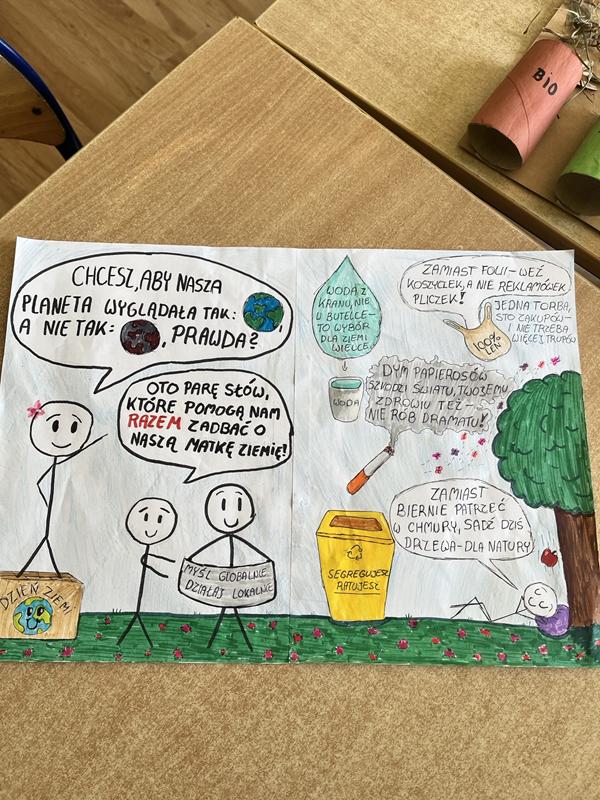 BIO
CHCESZ, ABY NASZA
PLANETA WYGLĄDAŁA TAK: ,
A NIE TAK: , PRAWDA?
OTO PARĘ SŁÓW,
KTÓRE POMOGĄ NAM
RAZEM ZADBAĆ O
NASZĄ MATKĘ ZIEMIĘ!
DZIEŃ ZIEMI
MYŚL GLOBALNIE
DZIAŁAJ LOKALNIE
WODA Z
KRANU, NIE
U BUTELCE-
TO WYBÓR
DLA ZIEMI
WIELCE.
WODA
ZAMIAST FOLII- WEŹ
KOSZYCZEK, A NIE REKLAMÓWEK
PLICZEK!
JEDNA TORBA,
STO ZAKUPÓW-
I NIE TRZEBA
WIĘCEJ TRUPÓW
100%
LEN
DYM PAPIEROSÓW
SZKODZI ŚWIATU, TWOJEMU
ZDROWIU TEŻ-
NIE RÓB DRAMATU!
ZAMIAST
BIERNIE PATRZEĆ
W CHMURY, SADŹ DZIŚ
DRZEWA-DLA NATURY
SEGREGUJESZ
RATUJESZ